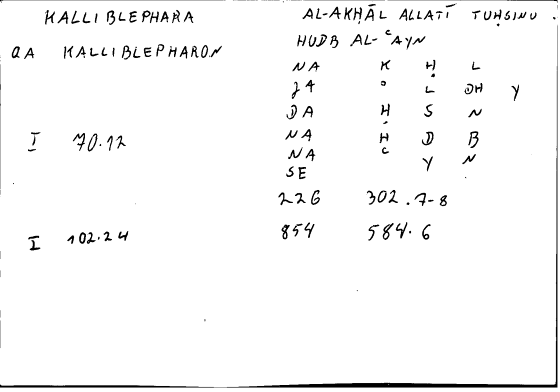 KALLIBLEPHARA AL-AKHĀL ALLATĪ TUḤSINU
QA KALLIBLEPHARON HUDB AL-ᶜAYN
NA K Ḥ L
JA ° L DH Y
DA Ḥ S N
I 70.12 NA H D B
NA ᶜ Y N
SE
226 302.7-8
I 102.24 854 584.6